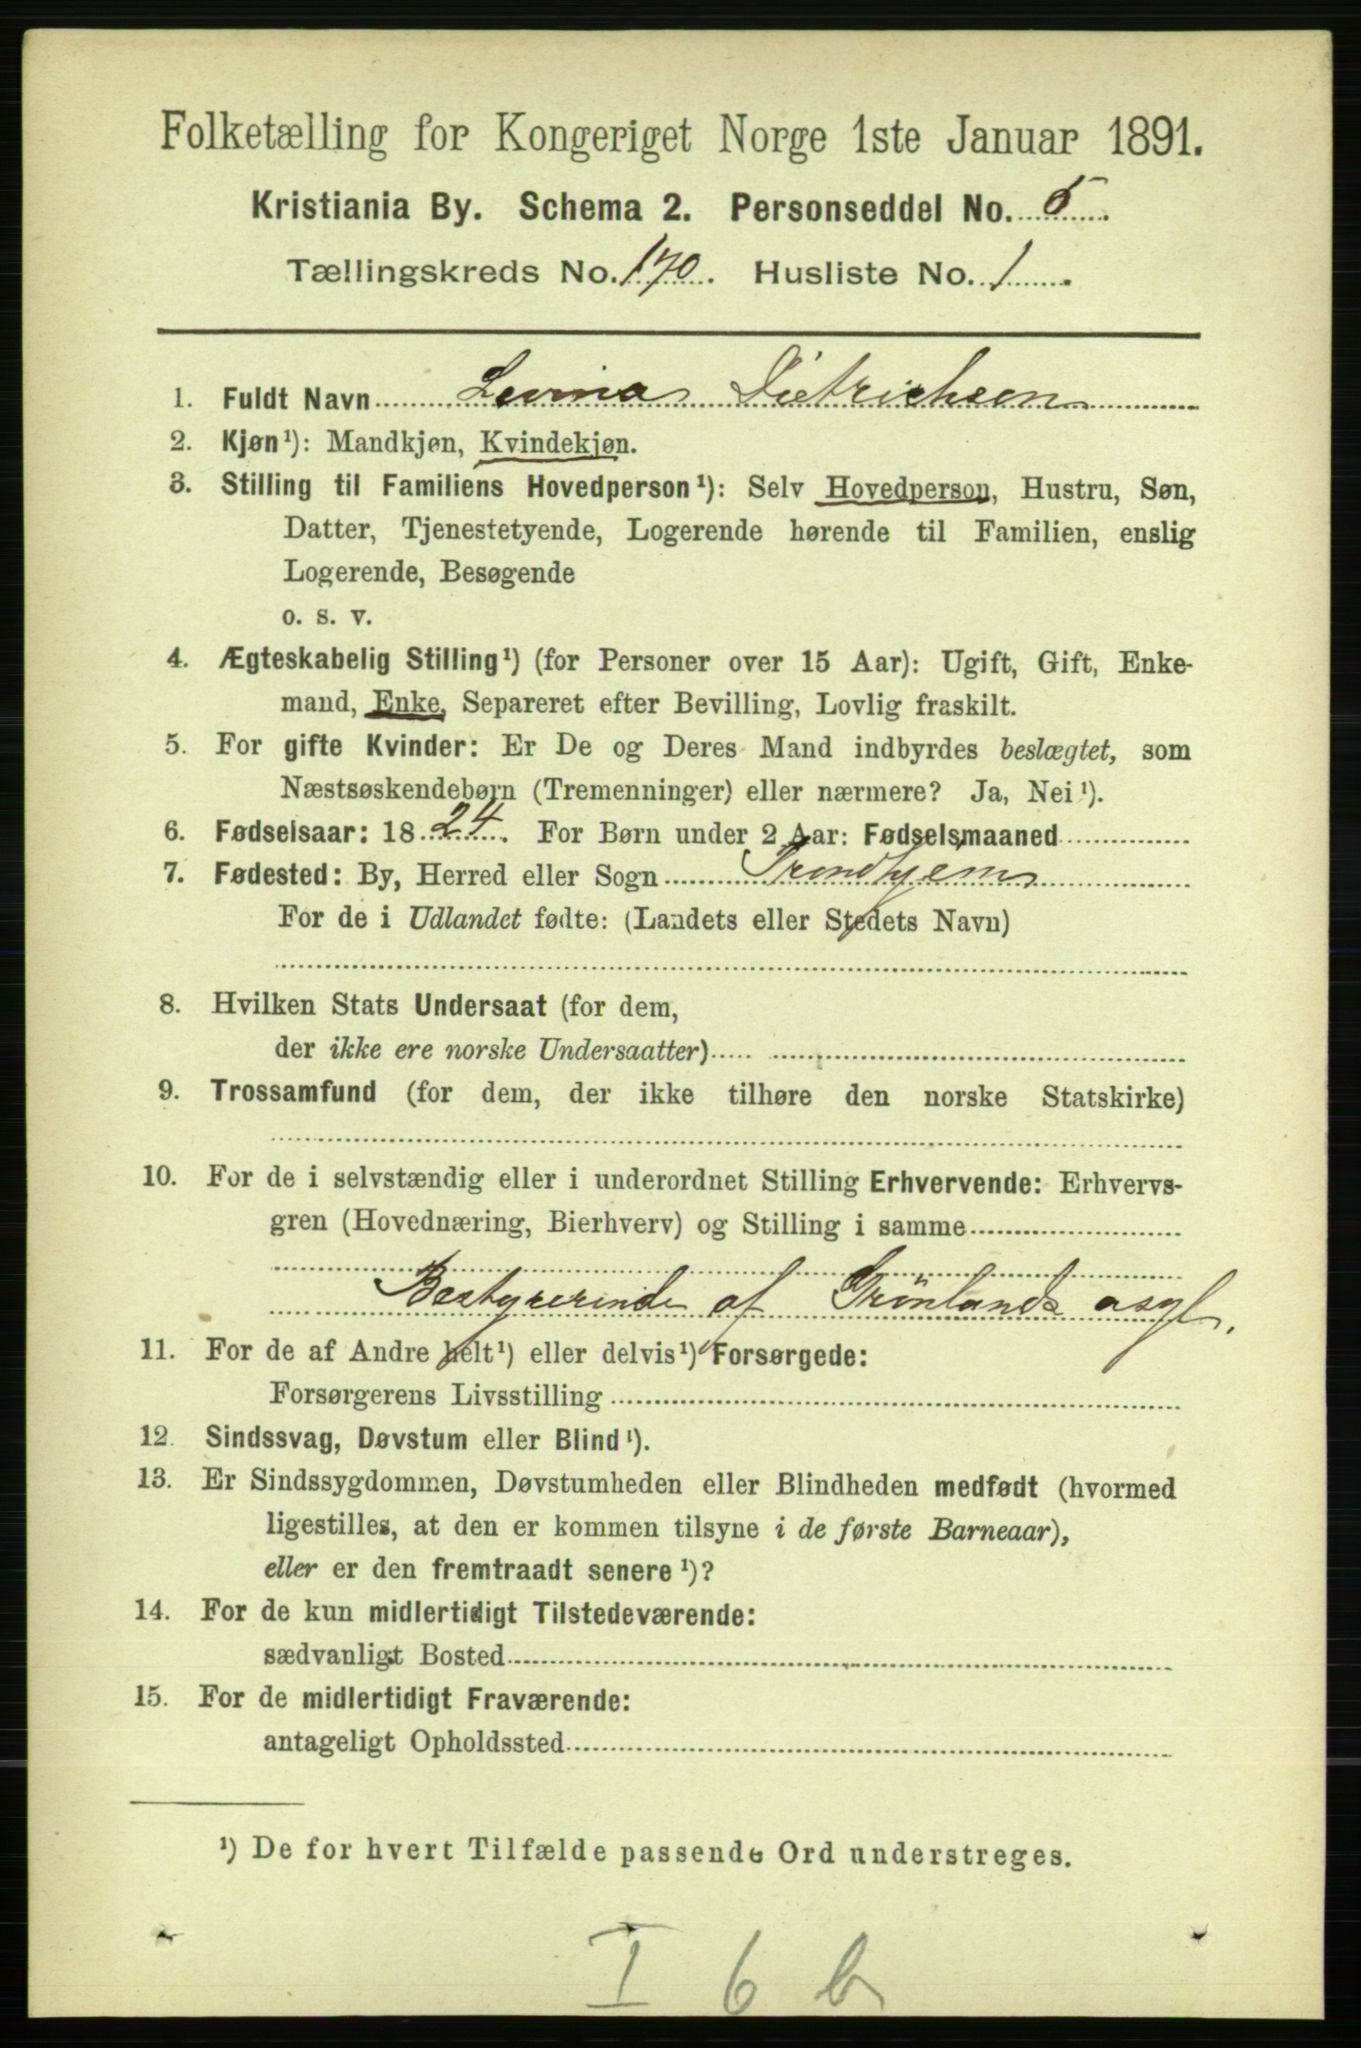 Folketælling for Kongeriget Norge 1ste Januar 1891.
Kristiania By. Schema 2. Personseddel No. 5
Tællingskreds No. 170. Husliste No. 1
1. Fuldt Navn Levina Dietrichson
2. Kjøn¹): Mandkjøn, Kvindekjøn.
3. Stilling til Familiens Hovedperson¹): Selv Hovedperson, Hustru, Søn,
Datter, Tjenestetyende, Logerende hørende til Familien, enslig
Logerende, Besøgende
o. s. v.
4. Ægteskabelig Stilling¹) (for Personer over 15 Aar): Ugift, Gift, Enke-
mand, Enke, Separeret efter Bevilling, Lovlig fraskilt.
5. For gifte Kvinder: Er De og Deres Mand indbyrdes beslægtet, som
Næstsøskendebørn (Tremenninger) eller nærmere? Ja, Nei¹).
6. Fødselsaar: 1824. For Børn under 2 Aar: Fødselsmaaned
7. Fødested: By, Herred eller Sogn Trondhjem
For de i Udlandet fødte: (Landets eller Stedets Navn)
8. Hvilken Stats Undersaat (for dem,
der ikke ere norske Undersaatter)
9. Trossamfund (for dem, der ikke tilhøre den norske Statskirke)
10. For de i selvstændig eller i underordnet Stilling Erhvervende: Erhvervs-
gren (Hovednæring, Bierhverv) og Stilling i samme
Bestyrerinde af Grönlands asyl.
11. For de af Andre helt¹) eller delvis¹) Forsørgede:
Forsørgerens Livsstilling
12. Sindssvag, Døvstum eller Blind¹).
13. Er Sindssygdommen, Døvstumheden eller Blindheden medfødt (hvormed
ligestilles, at den er kommen tilsyne i de første Barneaar),
eller er den fremtraadt senere¹)?
14. For de kun midlertidigt Tilstedeværende:
sædvanligt Bosted
15. For de midlertidigt Fraværende:
antageligt Opholdssted
¹) De for hvert Tilfælde passende Ord understreges.
I 6 b